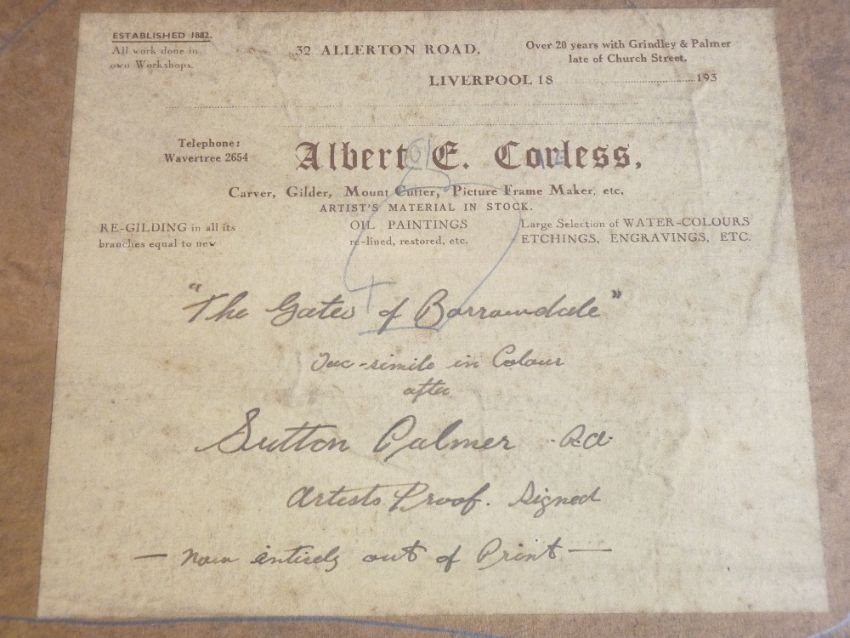 ESTABLISHED 1882.
All work done in
own Workshops.
32 ALLERTON ROAD,
Over 20 years with Grindley & Palmer
late of Church Street.
LIVERPOOL 18
193
Telephone:
Wavertree 2654
Albert E. Corless,
Carver, Gilder, Mount Cutter, Picture Frame Maker, etc.
ARTIST'S MATERIAL IN STOCK.
RE-GILDING in all its
branches equal to new
OIL PAINTINGS
re-lined, restored, etc.
Large Selection of WATER-COLOURS
ETCHINGS, ENGRAVINGS, ETC.
"The Gates of Borrowdale"
Fac-simile in Colour
after
Sutton Palmer R.A.
Artists Proof. Signed
— now entirely out of Print —